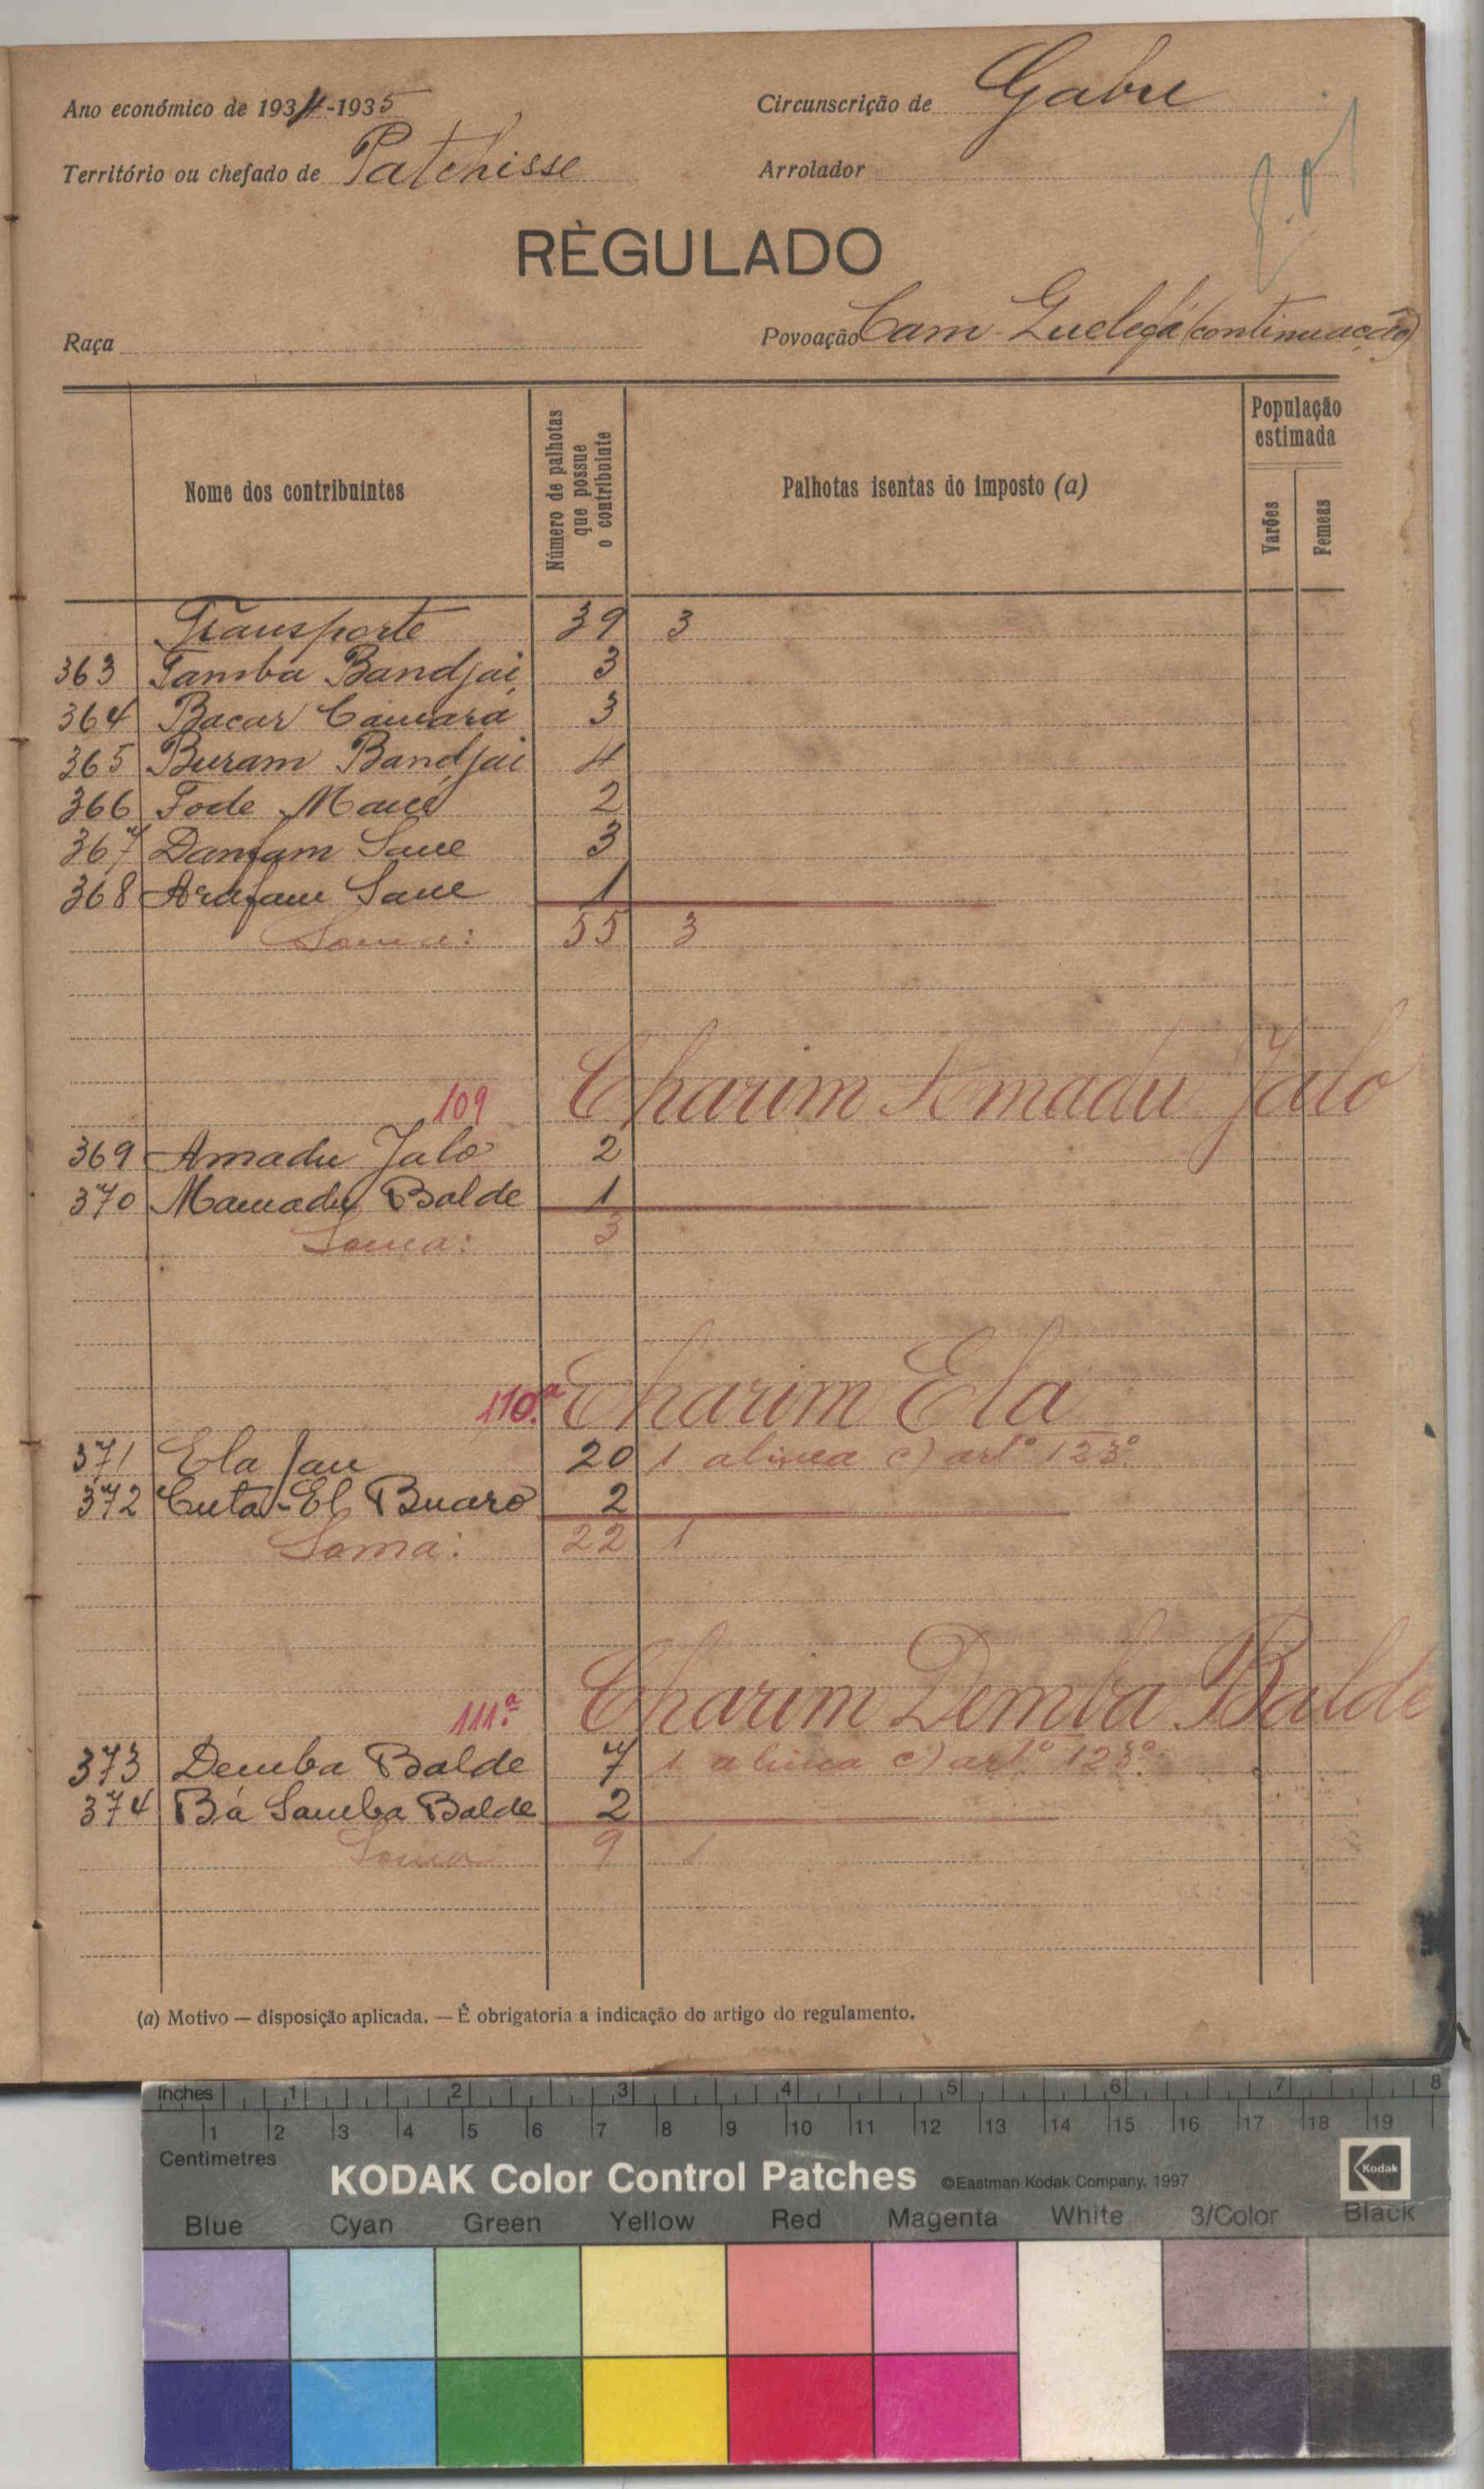 Ano económico de 1934-1935
Circunscrição de Gabu
Território ou chefado de Patchisse
Arrolador
RÈGULADO
Raça
Povoação Cam (continuação)
Nome dos contribuintes
Número de palhotas que possue o contribuinte
Palhotas isentas do imposto (a)
População estimada
Varões
Femeas
Transporte 39 3
363 Tamba Bandjai 3
364 Bacar Camará 3
365 Buram Bandjai 4
366 Fode Mané 2
367 Danfam Sane 3
368 Arafam Sane 1
Soma: 55 3
109 Charim Amadu Jalo
369 Amadu Jalo 2
370 Mamadu Balde 1
Soma: 3
110.ª Charim Ela
371 Ela Jau 20 1 alinea c) artº 123º
372 Cuta-El Buaro 2
Soma: 22 1
111.ª Charim Demba Balde
373 Demba Balde 7 1 alinea c) artº 123º
374 Bá Samba Balde 2
Soma 9 1
(a) Motivo — disposição aplicada. — É obrigatoria a indicação do artigo do regulamento.
Inches 1 2 3 4 5 6 7 8
1 2 3 4 5 6 7 8 9 10 11 12 13 14 15 16 17 18 19
Centimetres
KODAK Color Control Patches ©Eastman Kodak Company, 1997 Kodak
Blue Cyan Green Yellow Red Magenta White 3/Color Black